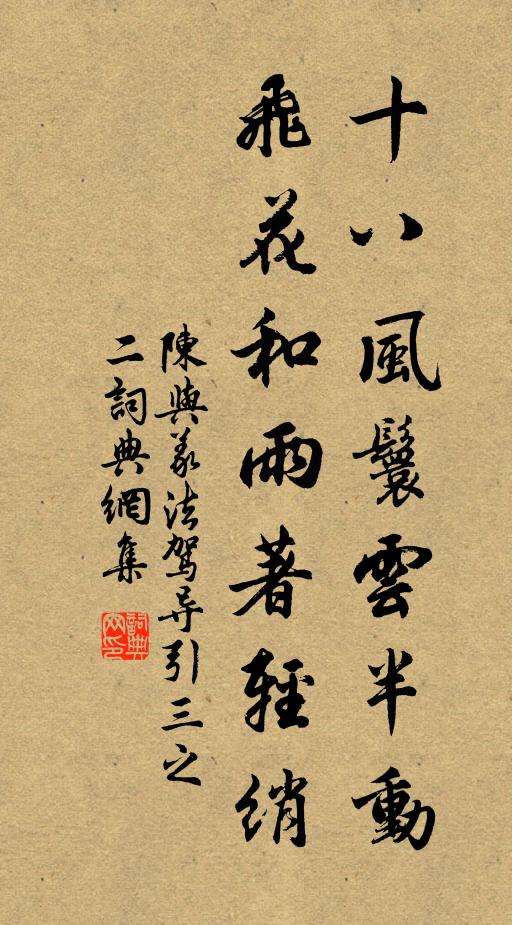 十八風鬟雲半動
飛花和雨著輕綃
陳與義法驾导引三之
二詞典網集
詞典网印